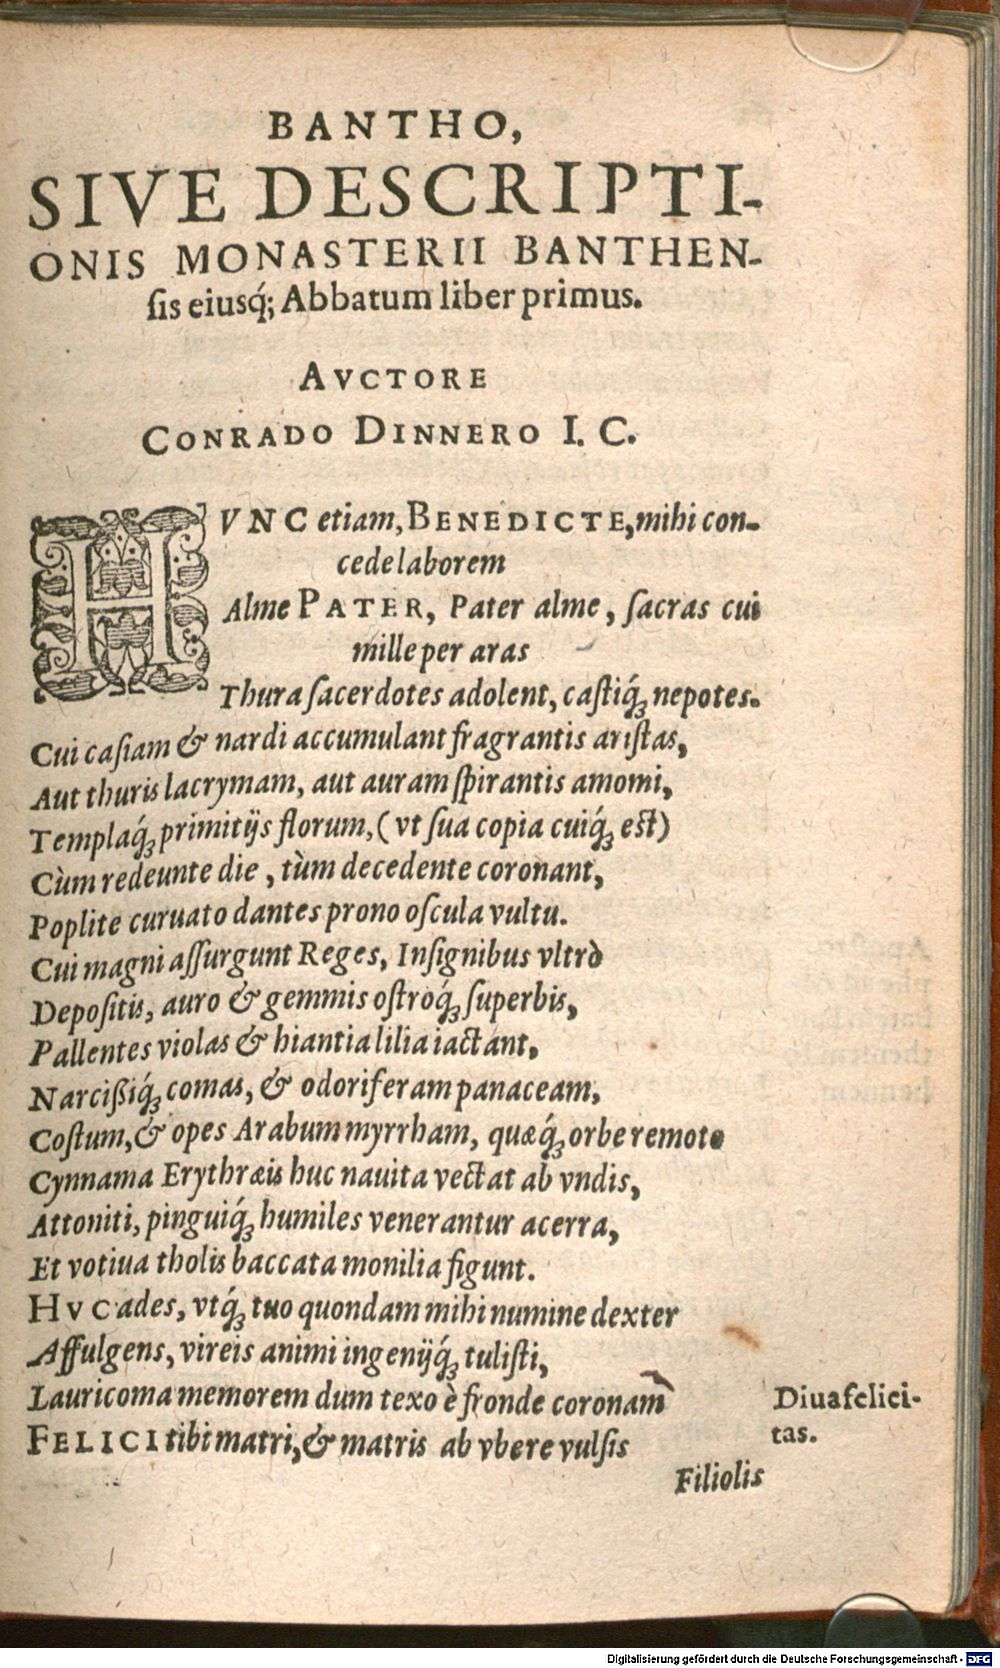 BANTHO,
SIVE DESCRIPTI-
ONIS MONASTERII BANTHEN-
sis eiusq́; Abbatum liber primus.
AVCTORE
CONRADO DINNERO I. C.
HVNC etiam, BENEDICTE, mihi con-
cede laborem
Alme PATER, Pater alme, sacras cui
mille per aras
Thura sacerdotes adolent, castiq́ꝫ nepotes.
Cui casiam & nardi accumulant fragrantis aristas,
Aut thuris lacrymam, aut auram spirantis amomi,
Templaq́ꝫ primitijs florum, (vt sua copia cuiq́ꝫ est)
Cùm redeunte die, tùm decedente coronant,
Poplite curuato dantes prono oscula vultu.
Cui magni assurgunt Reges, Insignibus vltrò
Depositis, auro & gemmis ostroq́ꝫ superbis,
Pallentes violas & hiantia lilia iactant,
Narcißiq́ꝫ comas, & odoriferam panaceam,
Costum, & opes Arabum myrrham, quæq́ꝫ orbe remoto
Cynnama Erythræis huc nauita vectat ab vndis,
Attoniti, pinguiq́ꝫ humiles venerantur acerra,
Et votiua tholis baccata monilia figunt.
HVC ades, vtq́ꝫ tuo quondam mihi numine dexter
Affulgens, vireis animi ingenijq́ꝫ tulisti,
Lauricoma memorem dum texo è fronde coronam
FELICI tibi matri, & matris ab vbere vulsis
Diua felici-
tas.
Filiolis
Digitalisierung gefördert durch die Deutsche Forschungsgemeinschaft - DFG